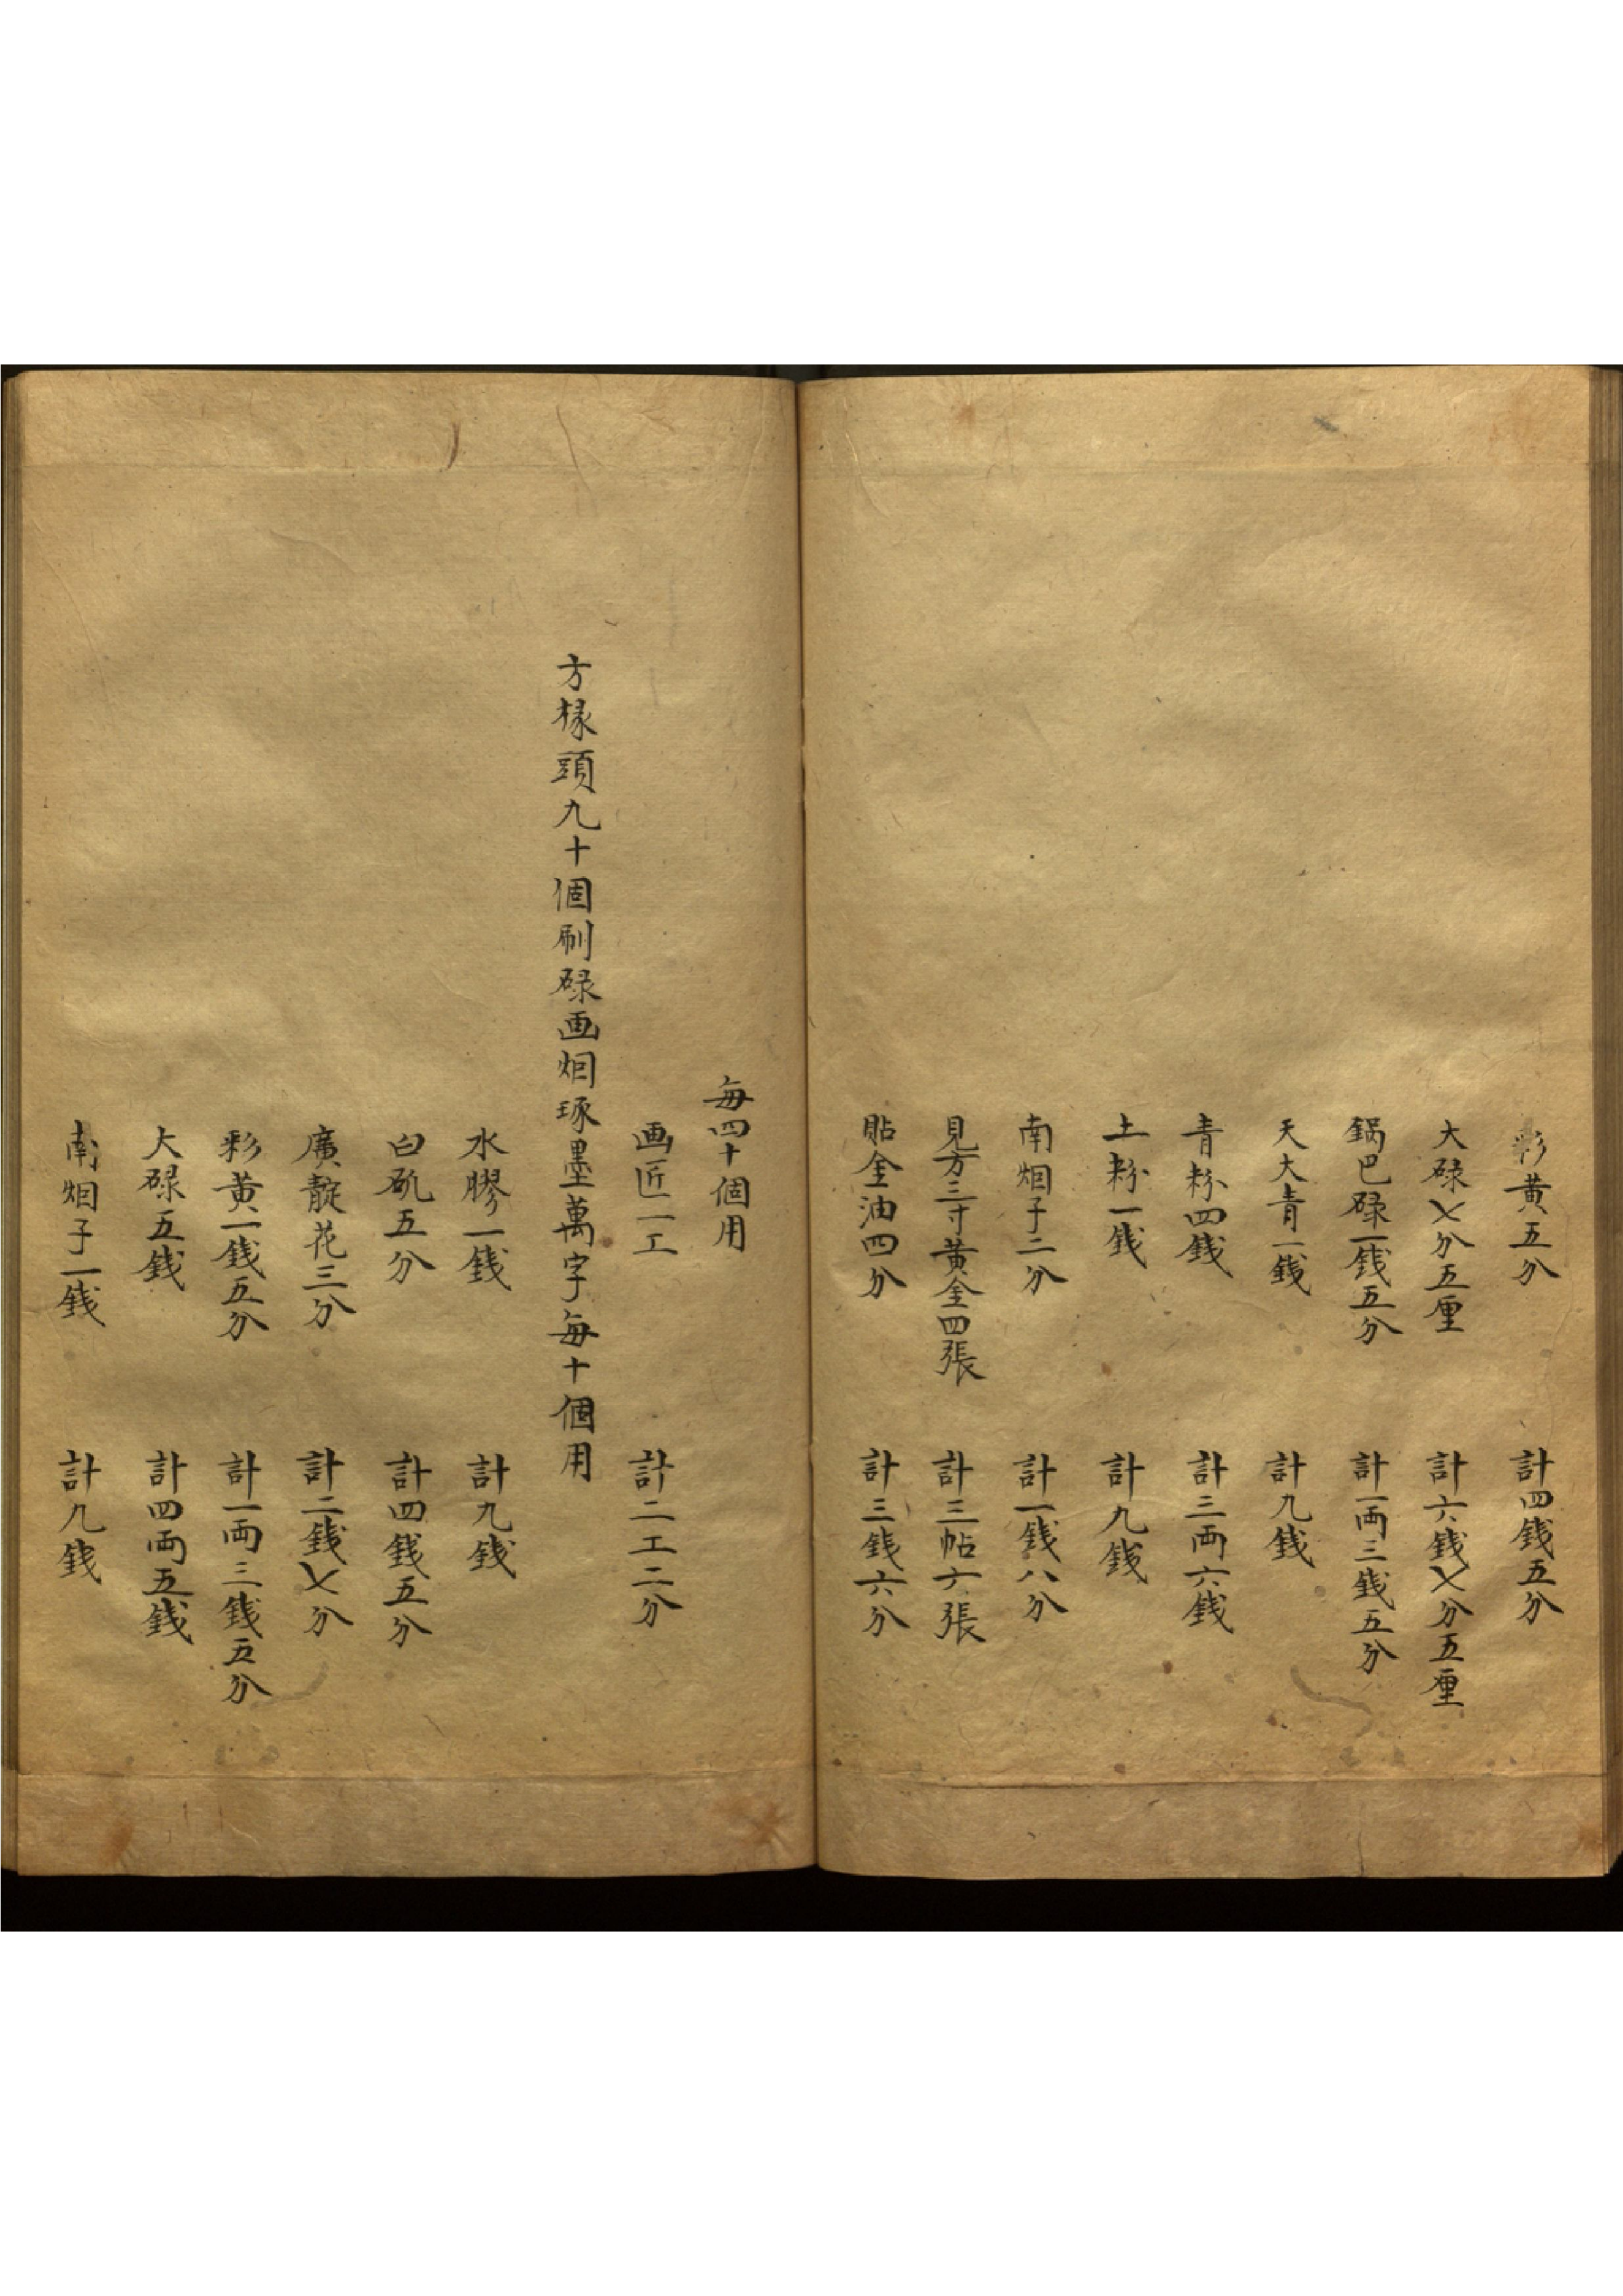 彩黄五分　計四錢五分
大碌七分五厘　計六錢七分五厘
鍋巴碌一錢五分　計一両三錢五分
天大青一錢　計九錢
青粉四錢　計三両六錢
土粉一錢　計九錢
南烟子二分　計一錢八分
見方三寸黄金四張　計三帖六張
貼金油四分　計三錢六分
每四十個用
画匠一工　計二工二分
方椽頭九十個刷碌画烟琢墨萬字每十個用
水膠一錢　計九錢
白矾五分　計四錢五分
廣靛花三分　計二錢七分
彩黄一錢五分　計一両三錢五分
大碌五錢　計四両五錢
南烟子一錢　計九錢